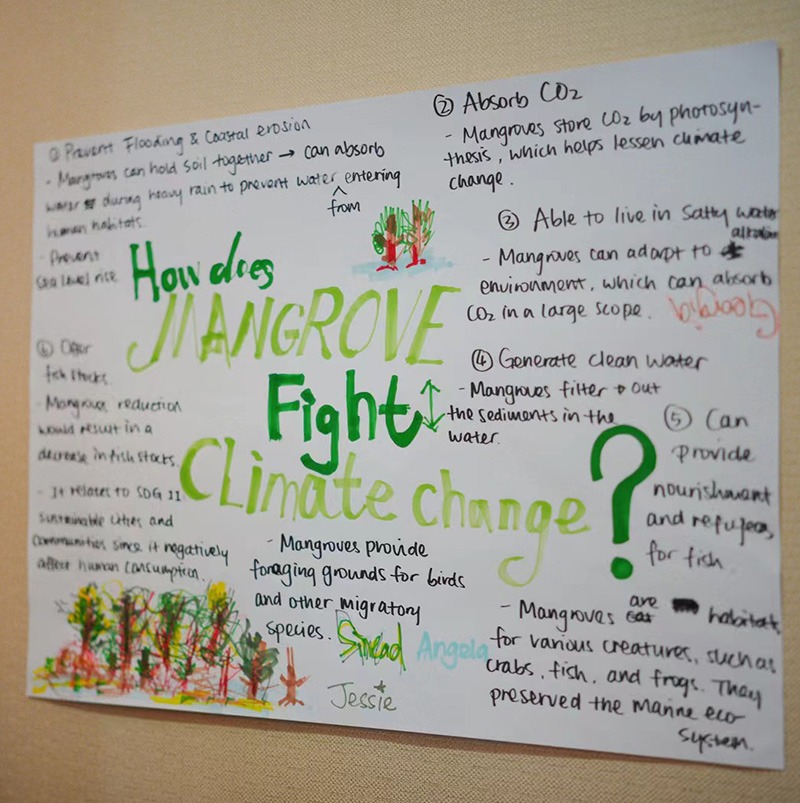 ① Prevent Flooding & Coastal erosion
- Mangroves can hold soil together → can absorb
water during heavy rain to prevent water entering
from
human habitats.
- Prevent
sea level rise
How does
MANGROVE
Fight
Climate change ?
② Absorb CO₂
- Mangroves store CO₂ by photosyn-
thesis, which helps lessen climate
change.
③ Able to live in Salty water
- Mangroves can adapt to alkaline
environment, which can absorb
CO₂ in a large scope.
Georgia
④ Generate clean water
- Mangroves filter out
the sediments in the
water.
⑤ Can
provide
nourishment
and refugees
for fish
- Mangroves are habitats
for various creatures, such as
crabs, fish, and frogs. They
preserved the Marine eco
system.
⑥ Offer
fish stocks.
- Mangrove reduction
would result in a
decrease in fish stocks.
- It relates to SDG 11
sustainable cities and
communities since it negatively
affect human consumption.
- Mangroves provide
foraging grounds for birds
and other migratory
species.
Sinead Angela
Jessie